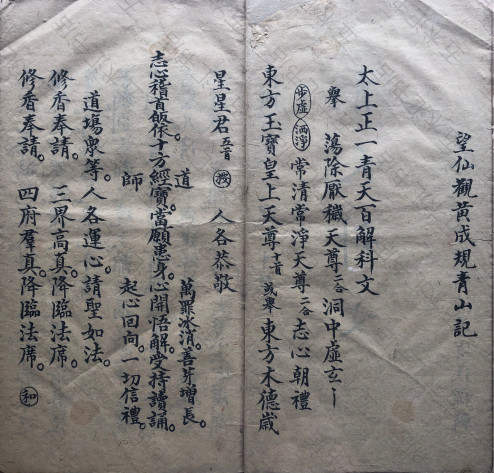 望仙觀黃成規青山記
太上正一青天百解科文
舉 蕩除厭穢天尊二合 洞中虛玄
步虛 洒淨 常清常淨天尊二合 志心朝禮
東方玉寶皇上天尊 或舉 東方木德歲
星星君 我 人各恭敬
道 萬罪氷消。善芽增長。
志心稽首皈依十方經寶。當願患身。心開悟解。受持讀誦。
師 起心回向一切信禮。
道場衆等。人各運心。請聖如法。
修香奉請。三界高真。降臨法席。
修香奉請。四府羣真。降臨法席。 和